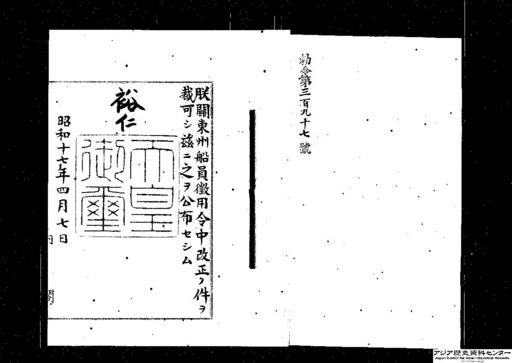 勅令第三百九十七號
朕關東州船員徵用令中改正ノ件ヲ
裁可シ茲ニ之ヲ公布セシム
裕仁
天皇御璽
昭和十七年四月七日
アジア歴史資料センター
Japan Center for Asian Historical Records